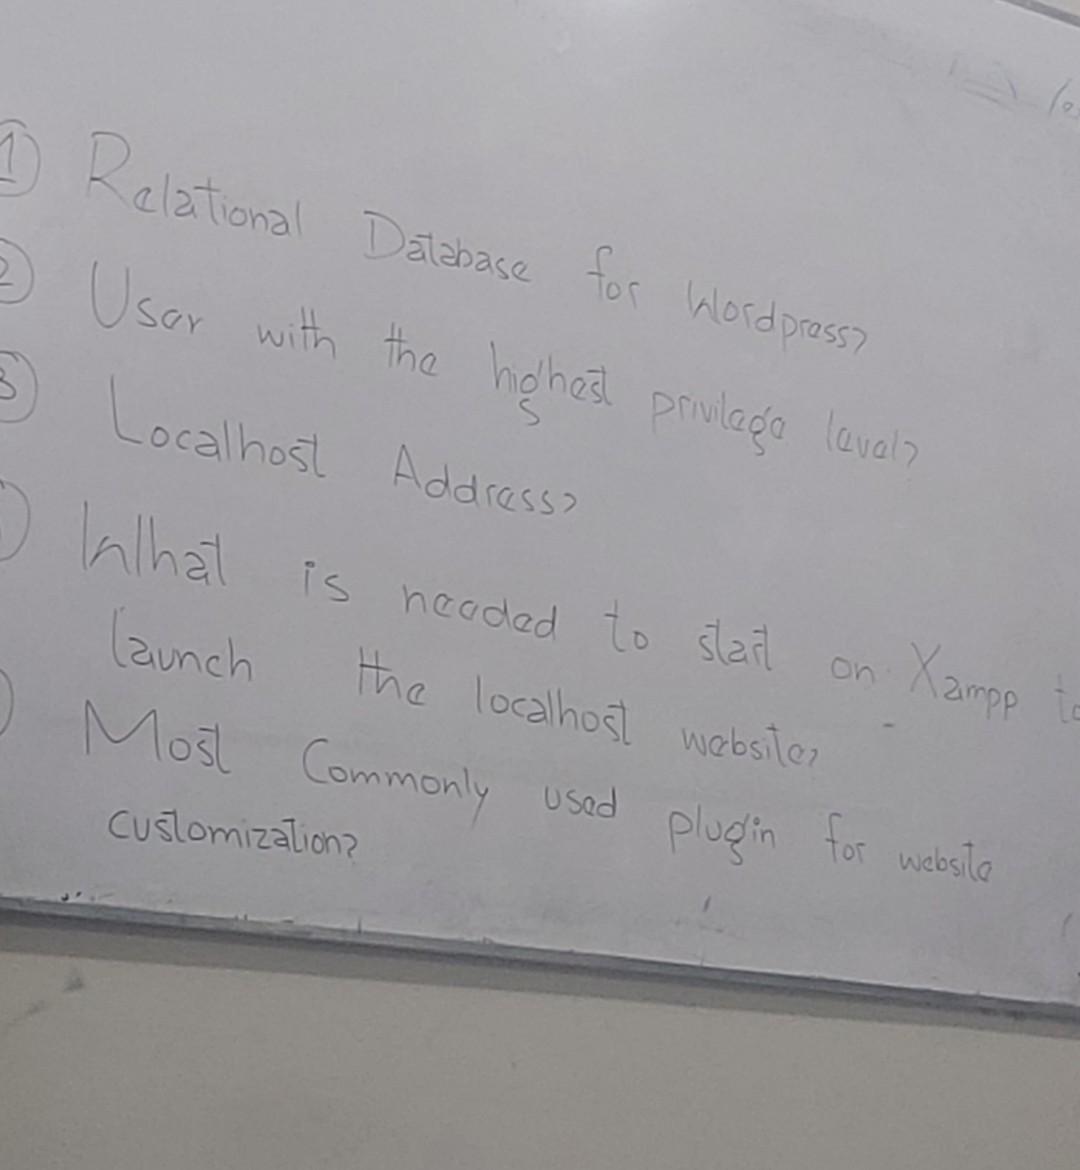 ① Relational Database for Wordpress?
② User with the highest privilege level?
③ Localhost Address?
What is needed to start on Xampp to
launch the localhost website?
Most Commonly used plugin for website
customization?